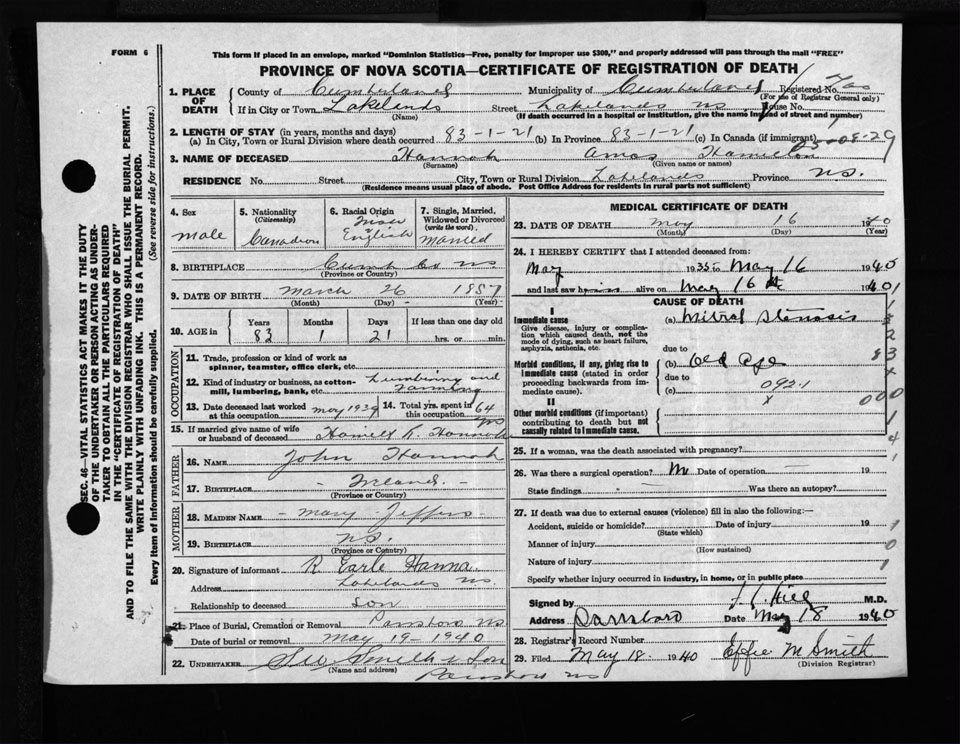 FORM 6
This form if placed in an envelope, marked "Dominion Statistics—Free, penalty for improper use $300," and properly addressed will pass through the mail "FREE"
PROVINCE OF NOVA SCOTIA—CERTIFICATE OF REGISTRATION OF DEATH
1. PLACE OF DEATH
County of Cumberland Municipality of Cumberland Registered No.
(For use of Registrar General only)
If in City or Town Lakelands Street Lakelands N.S. House No.
(Name) (If death occurred in a hospital or institution, give the name instead of street and number)
2. LENGTH OF STAY (in years, months and days)
(a) In City, Town or Rural Division where death occurred 83-1-21 (b) In Province 83-1-21 (c) In Canada (if immigrant)
3. NAME OF DECEASED Hannah Amos Hamilton
(Surname) (Given name or names)
RESIDENCE No. Street City, Town or Rural Division Lakelands Province N.S.
(Residence means usual place of abode. Post Office Address for residents in rural parts not sufficient)
4. Sex
male
5. Nationality
(Citizenship)
Canadian
6. Racial Origin
English
7. Single, Married, Widowed or Divorced
(write the word)
married
8. BIRTHPLACE Cumb Co NS
(Province or Country)
9. DATE OF BIRTH March 26 1857
(Month) (Day) (Year)
10. AGE in
Years Months Days If less than one day old
83 1 21 hrs. or min.
OCCUPATION
11. Trade, profession or kind of work as
spinner, teamster, office clerk, etc.
12. Kind of industry or business, as cotton-
mill, lumbering, bank, etc. Lumbering and
Farming
13. Date deceased last worked
at this occupation May 1939
14. Total yrs. spent in
this occupation 64
15. If married give name of wife
or husband of deceased Hannah
FATHER
16. Name John Hannah
17. Birthplace Ireland
(Province or Country)
MOTHER
18. Maiden Name Mary Jeffers
19. Birthplace NS.
(Province or Country)
20. Signature of informant R Earle Hanna.
Address Lakelands NS.
Relationship to deceased son
21. Place of Burial, Cremation or Removal Parrsboro NS
Date of burial or removal May 19-1940
22. Undertaker Smith & Son
(Name and address)
Parrsboro NS
MEDICAL CERTIFICATE OF DEATH
23. DATE OF DEATH May 16 1940
(Month) (Day) (Year)
24. I HEREBY CERTIFY that I attended deceased from:
May 1935 to May 16 1940
and last saw h alive on May 16th 1940
CAUSE OF DEATH
I
Immediate cause
Give disease, injury or complication which caused death, not the mode of dying, such as heart failure, asphyxia, asthenia, etc.
(a) Mitral Stenosis
due to
Morbid conditions, if any, giving rise to immediate cause (stated in order proceeding backwards from immediate cause).
(b) Old Age
due to
(c)
II
Other morbid conditions (if important) contributing to death but not causally related to immediate cause.
25. If a woman, was the death associated with pregnancy?
26. Was there a surgical operation? No Date of operation 19
State findings Was there an autopsy?
27. If death was due to external causes (violence) fill in also the following:—
Accident, suicide or homicide? Date of injury 19
(State which)
Manner of injury
(How sustained)
Nature of injury
Specify whether injury occurred in industry, in home, or in public place
Signed by Hill M.D.
Address Parrsboro Date May 18 1940
28. Registrar's Record Number
29. Filed May 18. 1940 Effie M Smith
(Division Registrar)
SEC. 46—VITAL STATISTICS ACT MAKES IT THE DUTY
OF THE UNDERTAKER OR PERSON ACTING AS UNDER-
TAKER TO OBTAIN ALL THE PARTICULARS REQUIRED
IN THE "CERTIFICATE OF REGISTRATION OF DEATH"
AND TO FILE THE SAME WITH THE DIVISION REGISTRAR WHO SHALL ISSUE THE BURIAL PERMIT.
WRITE PLAINLY WITH UNFADING INK. THIS IS A PERMANENT RECORD.
Every item of information should be carefully supplied. (See reverse side for instructions.)